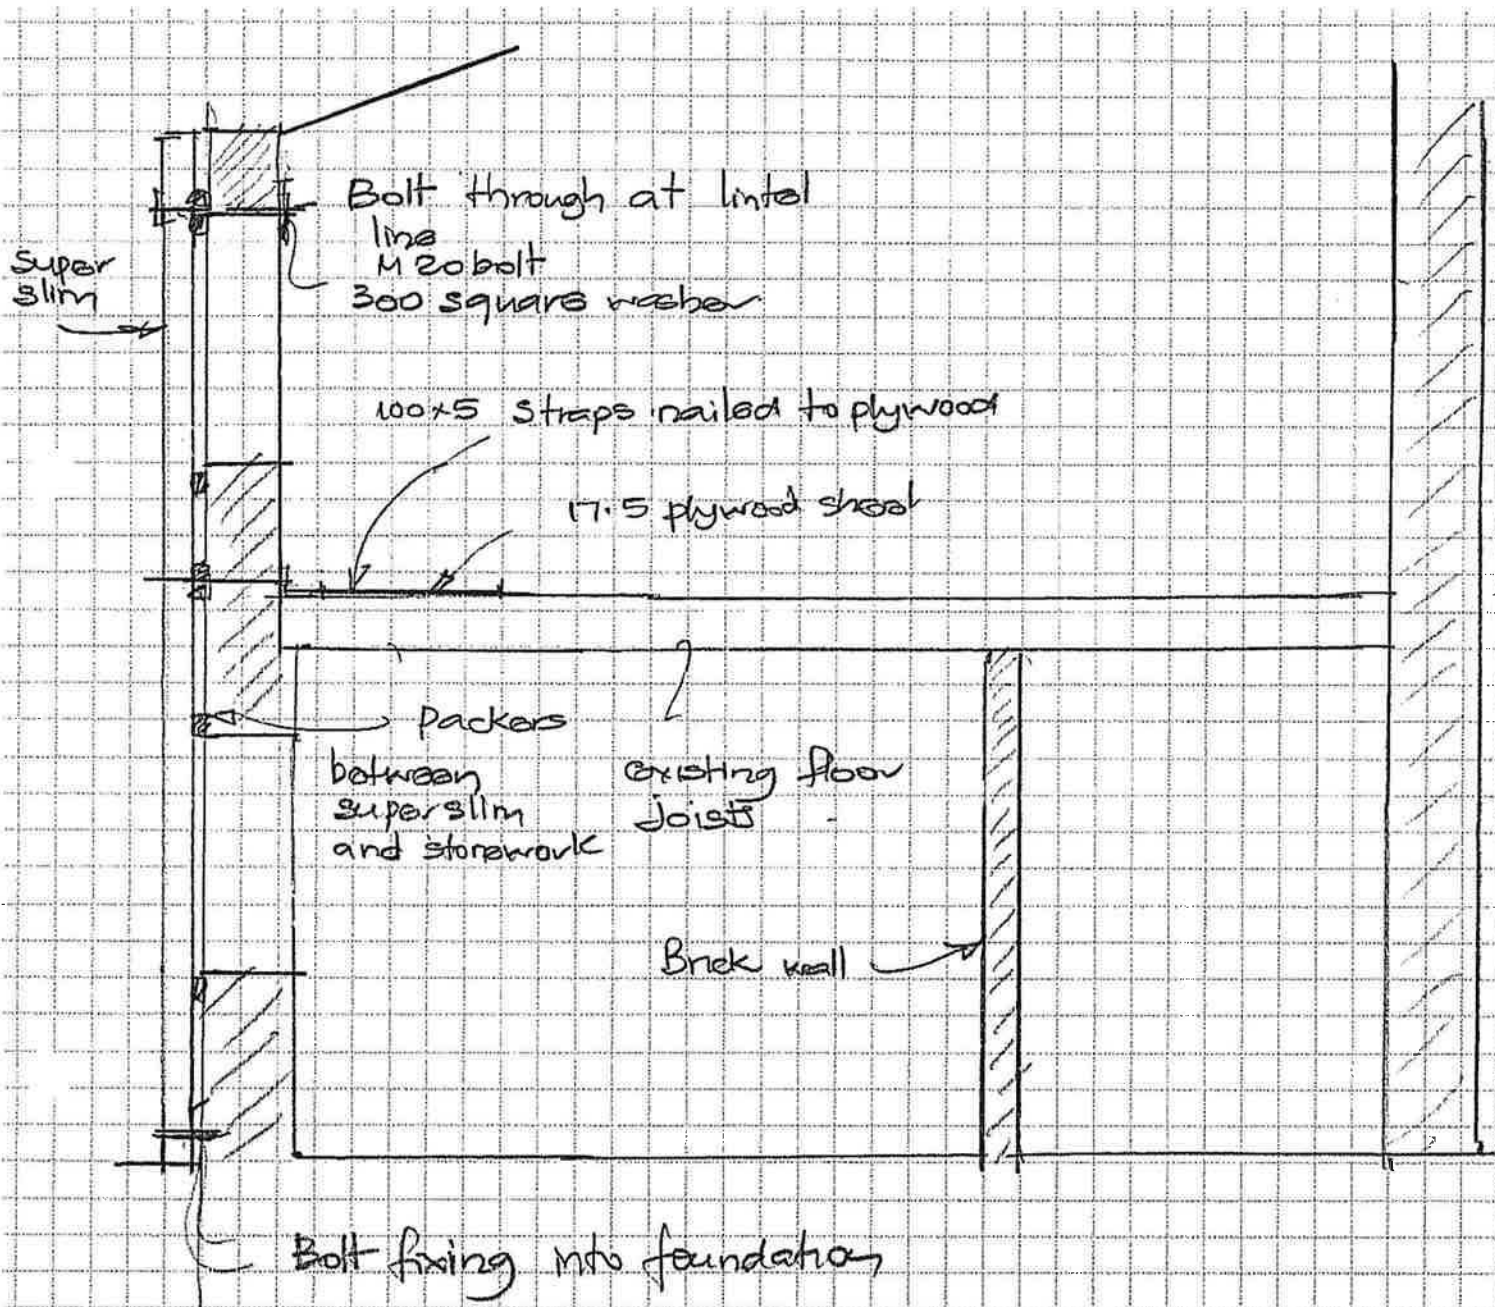 Bolt through at lintel
line
M20 bolt
300 square washer
super
slim
100×5 straps nailed to plywood
17.5 plywood sheet
Packers
between
superslim
and stonework
existing floor
joists
Brick wall
Bolt fixing into foundation